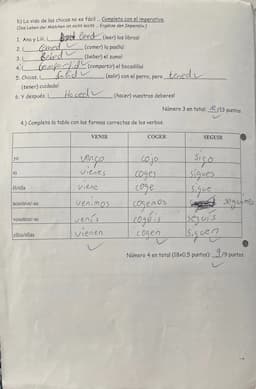 b) La vida de los chicos no es fácil... Completa con el imperativo.
(Das Leben der Mädchen ist nicht leicht... Ergänze den Imperativ.)
1. Ana y Lili, ¡ Leed (leer) los libros!
2. ¡ Comed (comer) la paella!
3. ¡ Bebed (beber) el zumo!
4. ¡ Compartid (compartir) el bocadillo!
5. Chicos, ¡ Salid (salir) con el perro, pero tened
(tener) cuidado!
6. Y después ¡ Haced (hacer) vuestros deberes!
Número 3 en total: /13 puntos
4.) Completa la tabla con las formas correctas de los verbos.
VENIR COGER SEGUIR
yo vengo cojo sigo
tú vienes coges sigues
él/ella viene coge sigue
nosotros/-as venimos cogemos seguimos
vosotros/-as venís cogéis seguís
ellos/ellas vienen cogen siguen
Número 4 en total (18x0,5 puntos): 9/9 puntos